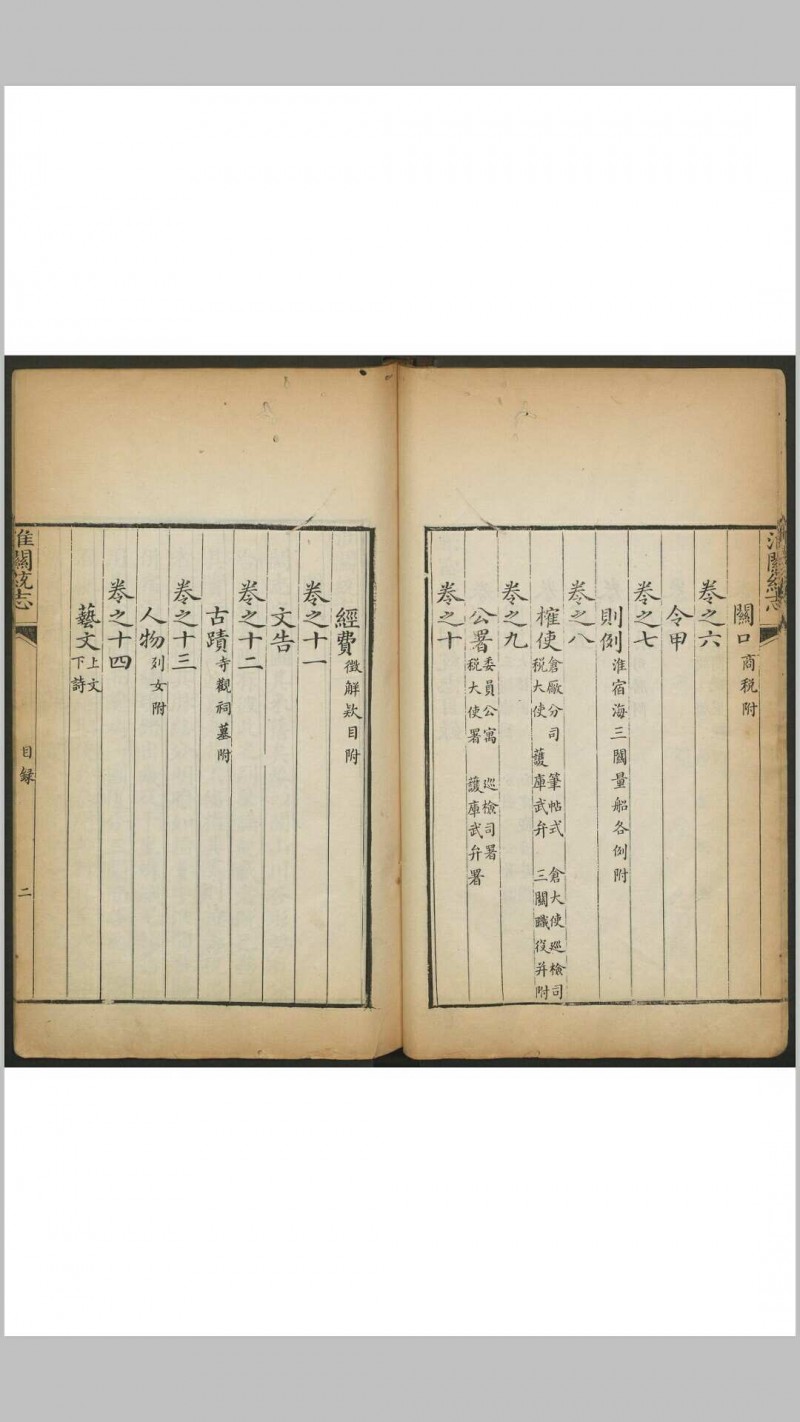 關口商税附
卷之六
令甲
卷之七
則例淮宿海三關量船各例附
卷之八
榷使倉厰分司 筆帖式 倉大使巡檢司
税大使 護庫武弁 三關職役并附
卷之九
公署委員公寓 巡檢司署
税大使署 護庫武弁署
卷之十
經費徵解欵目附
卷之十一
文告
卷之十二
古蹟寺觀祠墓附
卷之十三
人物列女附
卷之十四
藝文上文
下詩
淮關統志 目録 二